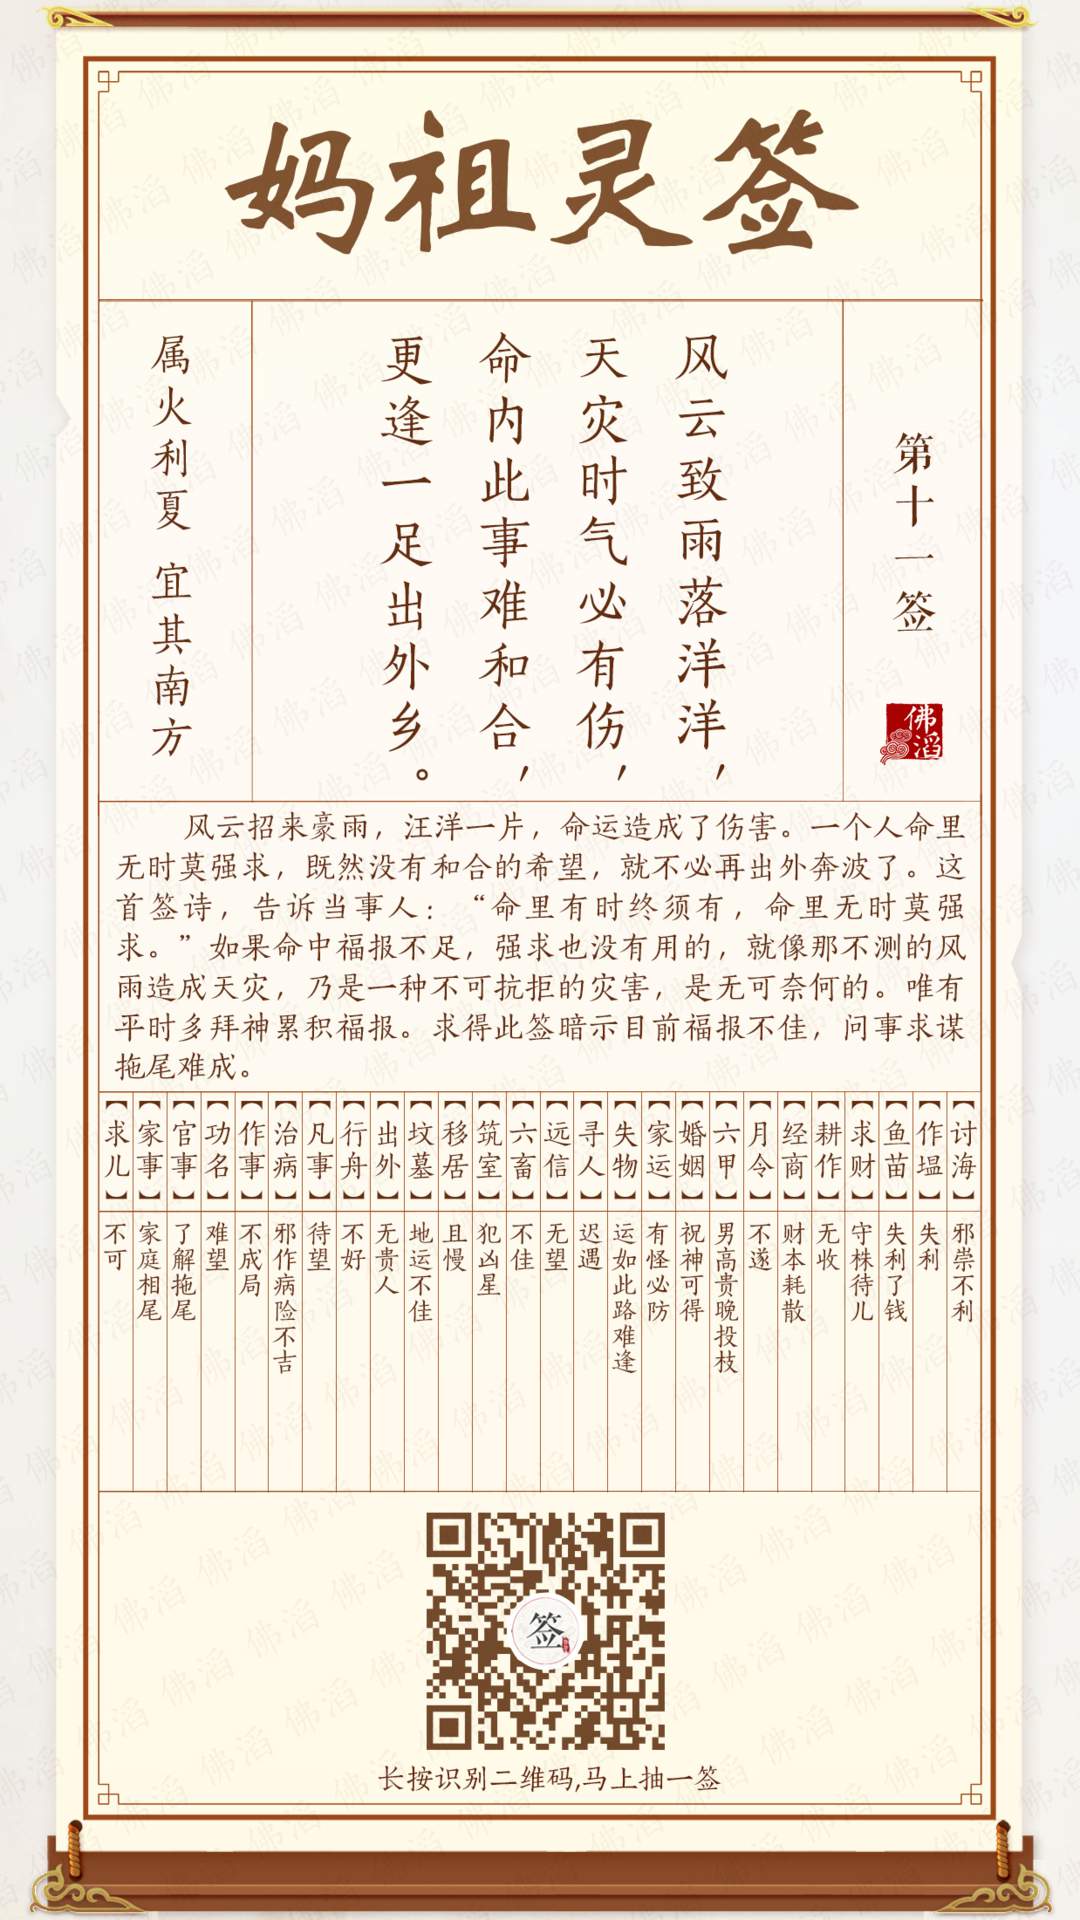 妈祖灵签
第十一签
佛滔
风云致雨落洋洋，
天灾时气必有伤，
命内此事难和合，
更逢一足出外乡。
属火利夏 宜其南方
风云招来豪雨，汪洋一片，命运造成了伤害。一个人命里
无时莫强求，既然没有和合的希望，就不必再出外奔波了。这
首签诗，告诉当事人：“命里有时终须有，命里无时莫强
求。”如果命中福报不足，强求也没有用的，就像那不测的风
雨造成天灾，乃是一种不可抗拒的灾害，是无可奈何的。唯有
平时多拜神累积福报。求得此签暗示目前福报不佳，问事求谋
拖尾难成。
【讨海】邪祟不利
【作塭】失利
【鱼苗】失利了钱
【求财】守株待儿
【耕作】无收
【经商】财本耗散
【月令】不遂
【六甲】男高贵晚投枝
【婚姻】祝神可得
【家运】有怪必防
【失物】运如此路难逢
【寻人】迟遇
【远信】无望
【六畜】不佳
【筑室】犯凶星
【移居】且慢
【坟墓】地运不佳
【出外】无贵人
【行舟】不好
【凡事】待望
【治病】邪作病险不吉
【作事】不成局
【功名】难望
【官事】了解拖尾
【家事】家庭相尾
【求儿】不可
签
长按识别二维码,马上抽一签